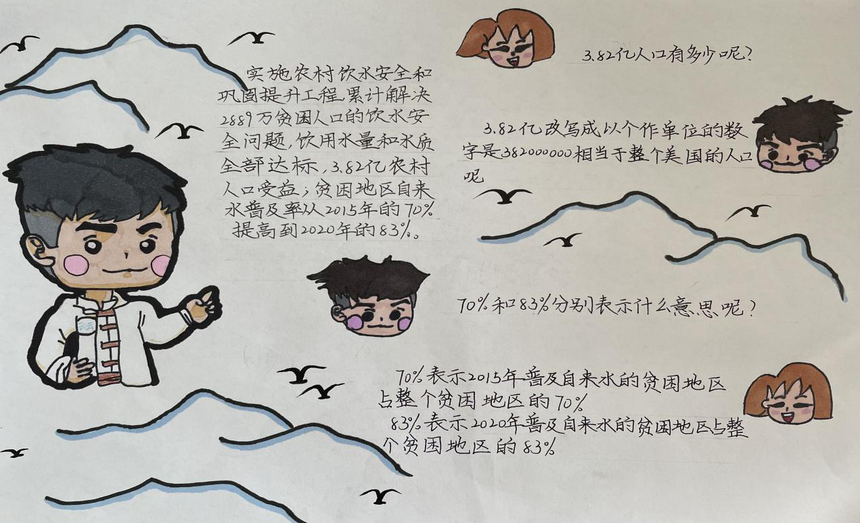 实施农村饮水安全和
巩固提升工程,累计解决
2889万贫困人口的饮水安
全问题,饮用水量和水质
全部达标,3.82亿农村
人口受益;贫困地区自来
水普及率从2015年的70%
提高到2020年的83%。
3.82亿人口有多少呢?
3.82亿改写成以个作单位的数
字是382000000相当于整个美国的人口
呢
70%和83%分别表示什么意思呢?
70%表示2015年普及自来水的贫困地区
占整个贫困地区的70%
83%表示2020年普及自来水的贫困地区占整
个贫困地区的83%